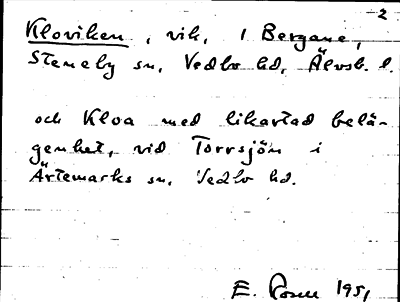 2
Kloviken, vik, 1 Bergane,
Steneby sn, Vedbo hd, Älvsb. l.
och Kloa med likartad belä-
genhet, vid Torrsjön i
Ärtemarks sn, Vedbo hd.
E. Rosell 1951